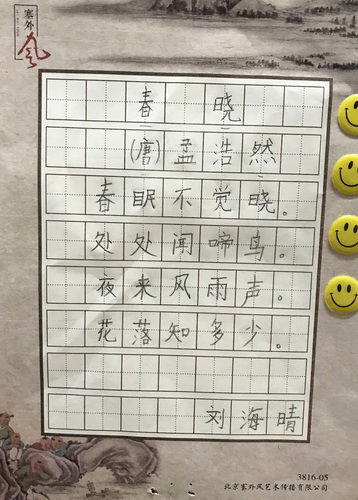 塞外
风
春晓
(唐)孟浩然
春眠不觉晓。
处处闻啼鸟。
夜来风雨声。
花落知多少。
刘海晴
3816-05
北京塞外风艺术传播有限公司